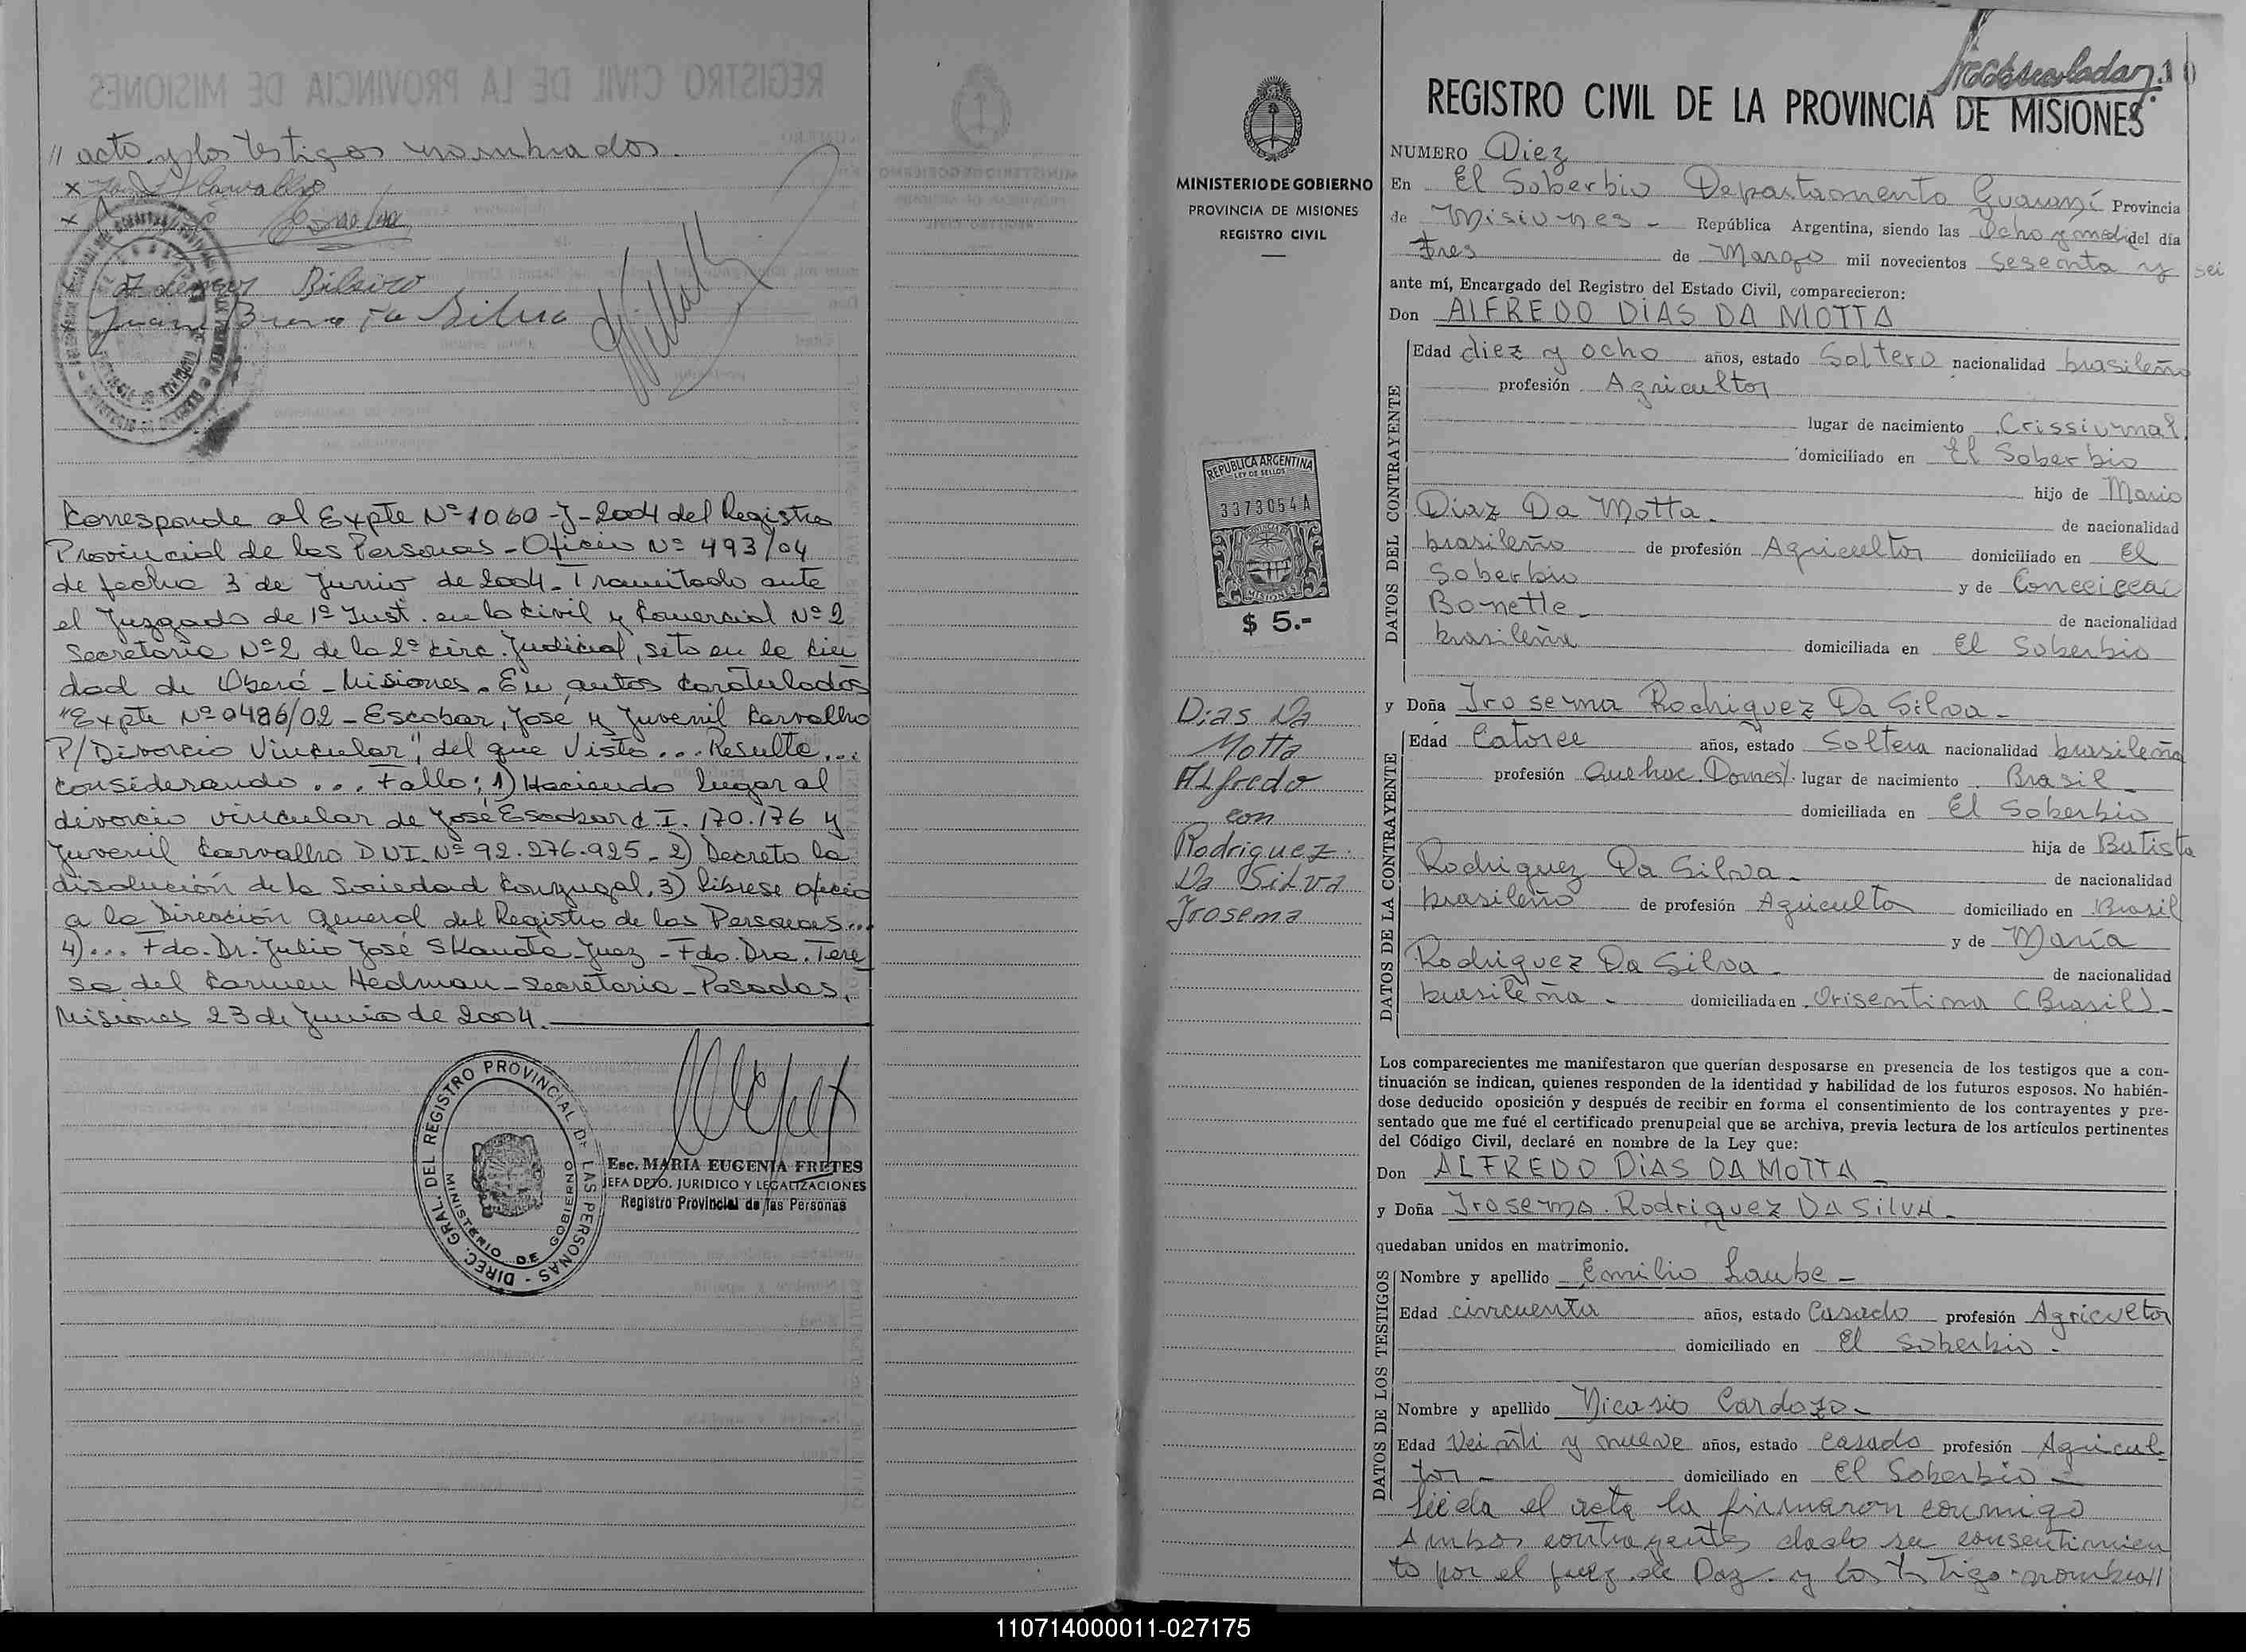 // acto y los testigos nombrados.
x Carvalho
x
Ribeiro
Juan Da Silva
Corresponde al Expte Nº 1060-J-2004 del Registro
Provincial de las Personas - Oficio Nº 493/04
de fecha 3 de Junio de 2004. Tramitado ante
el Juzgado de 1º Inst. en lo Civil y Comercial Nº 2
Secretaria Nº 2 de la 2º Circ. Judicial, sito en la Ciu
dad de Oberá - Misiones. En autos Caratulados
"Expte Nº 0486/02 - Escobar, José y Juvenil Carvalho
P/Divorcio Vincular", del que Visto... Resulta...
Considerando ... Fallo: 1) Haciendo lugar al
divorcio vincular de José Escobar C.I. 170.176 y
Juvenil Carvalho DNI. Nº 92.276.925 - 2) Decreto la
disolución de la Sociedad Conyugal. 3) Líbrese oficio
a la Dirección General del Registro de las Personas...
4)... Fdo. Dr. Julio José Skanata - Juez - Fdo. Dra. Tere
sa del Carmen Hedman - Secretaria - Posadas,
Misiones 23 de Junio de 2004.
DIREC. GRAL. DEL REGISTRO PROVINCIAL DE LAS PERSONAS -
MINISTERIO DE GOBIERNO
Esc. MARIA EUGENIA FRETES
JEFA DPTO. JURIDICO Y LEGALIZACIONES
Registro Provincial de las Personas
MINISTERIO DE GOBIERNO
PROVINCIA DE MISIONES
REGISTRO CIVIL
REPUBLICA ARGENTINA
LEY DE SELLOS
3373054A
MISIONES
$ 5.-
Dias Da
Motta
Alfredo
con
Rodriguez
Da Silva
Irosema
10
REGISTRO CIVIL DE LA PROVINCIA DE MISIONES
NUMERO Diez
En El Soberbio Departamento Guaraní Provincia
de Misiones - República Argentina, siendo las Ocho y media del día
Tres de Marzo mil novecientos sesenta y sei
ante mí, Encargado del Registro del Estado Civil, comparecieron:
Don ALFREDO DIAS DA MOTTA
DATOS DEL CONTRAYENTE
Edad diez y ocho años, estado Soltero nacionalidad brasileño
profesión Agricultor
lugar de nacimiento Crissiumal
domiciliado en El Soberbio
hijo de Mario
Diaz Da Motta. de nacionalidad
brasileño de profesión Agricultor domiciliado en El
Soberbio y de
Bonette de nacionalidad
brasileña domiciliada en El Soberbio
y Doña Irosema Rodriguez Da Silva -
DATOS DE LA CONTRAYENTE
Edad Catorce años, estado Soltera nacionalidad brasileña
profesión Quehac. Domest. lugar de nacimiento Brasil
domiciliada en El Soberbio
hija de Batista
Rodriguez Da Silva - de nacionalidad
brasileño de profesión Agricultor domiciliado en Brasil
y de María
Rodriguez Da Silva - de nacionalidad
brasileña - domiciliada en Orisentima (Brasil) -
Los comparecientes me manifestaron que querían desposarse en presencia de los testigos que a con-
tinuación se indican, quienes responden de la identidad y habilidad de los futuros esposos. No habién-
dose deducido oposición y después de recibir en forma el consentimiento de los contrayentes y pre-
sentado que me fué el certificado prenupcial que se archiva, previa lectura de los artículos pertinentes
del Código Civil, declaré en nombre de la Ley que:
Don ALFREDO DIAS DA MOTTA -
y Doña Irosema. Rodriguez DA SILVA -
quedaban unidos en matrimonio.
DATOS DE LOS TESTIGOS
Nombre y apellido Emilio Laube -
Edad cincuenta años, estado Casado profesión Agricultor
domiciliado en El Soberbio -
Nombre y apellido Nicasio Cardozo -
Edad Veinti y nueve años, estado casado profesión Agricul-
tor - domiciliado en El Soberbio -
Leída el acta la firmaron conmigo
Ambos contrayentes dado su consentimien
to por el Juez de Paz y los testigos nombra//
110714000011-027175